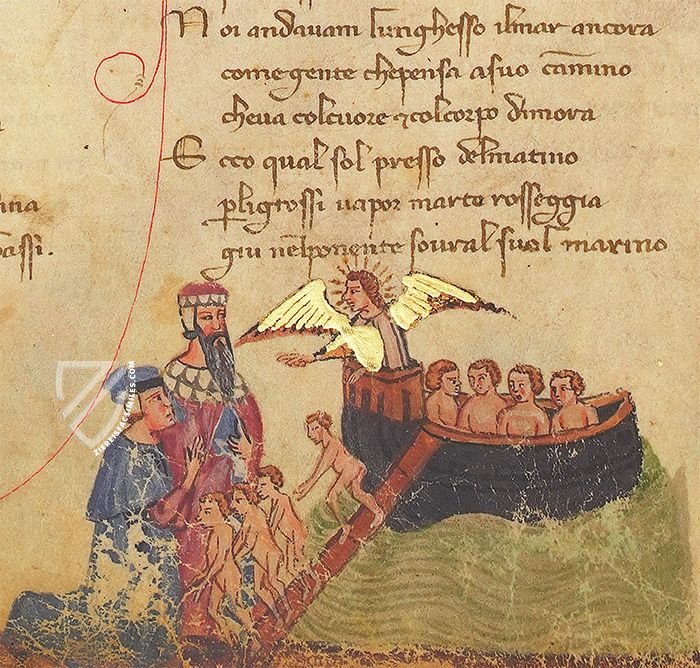 Noi andavam lunghesso ilmar ancora
come gente chepensa asuo camino
cheua colcuore ⁊colcorpo dimora
Ecco qual sol presso delmatino
pligrossi uapor marte rosseggia
giu nelponente soural suol marino
ina
assi.
ZIEREISFACSIMILES.COM